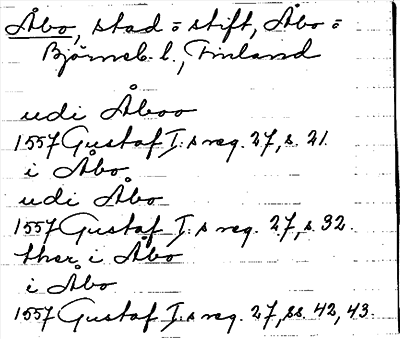 Åbo, stad o stift, Åbo o
Björneb. l., Finland
udi Åboo
1557 Gustaf I:s reg. 27, s. 21.
i Åbo
udi Åbo
1557 Gustaf I:s reg. 27, s. 32.
ther i Åbo
i Åbo
1557 Gustaf I:s reg. 27, ss. 42, 43.